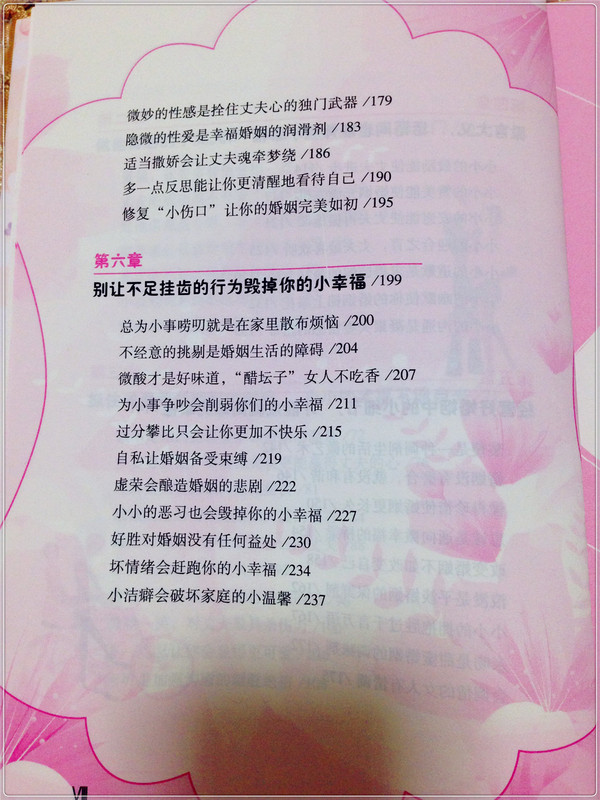 微妙的性感是拴住丈夫心的独门武器 /179
隐微的性爱是幸福婚姻的润滑剂 /183
适当撒娇会让丈夫魂牵梦绕 /186
多一点反思能让你更清醒地看待自己 /190
修复“小伤口”让你的婚姻完美如初 /195
第六章
别让不足挂齿的行为毁掉你的小幸福 /199
总为小事唠叨就是在家里散布烦恼 /200
不经意的挑剔是婚姻生活的障碍 /204
微酸才是好味道，“醋坛子”女人不吃香 /207
为小事争吵会削弱你们的小幸福 /211
过分攀比只会让你更加不快乐 /215
自私让婚姻备受束缚 /219
虚荣会酿造婚姻的悲剧 /222
小小的恶习也会毁掉你的小幸福 /227
好胜对婚姻没有任何益处 /230
坏情绪会赶跑你的小幸福 /234
小洁癖会破坏家庭的小温馨 /237